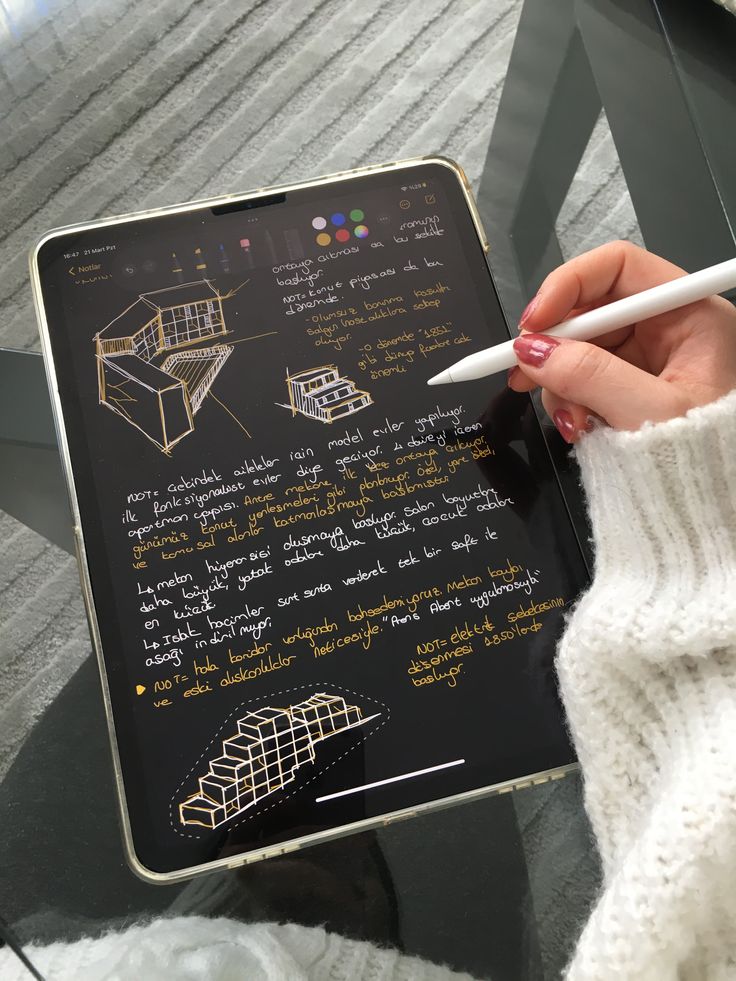 16:47 21 Mart Pzt
%29
Notlar
ortaya çıkması da bu şekilde
başlıyor.
NOT= Konut piyasası da bu
dönemde.
-Olumsuz barınma koşulları
salgın hastalıklara sebep
oluyor.
-O dönemde "1851"
gibi dünya fuarları çok
önemli
NOT= aileler için model evler yapılıyor.
ilk fonksiyonalist evler diye geçiyor. ↳ 4 daireyi içeren
apartman yapısı. Antre mekanı ilk kez ortaya çıkıyor,
günümüz konut yerleşmeleri gibi planlanıyor. Özel, yarı özel,
ve kamusal alanlar katmanlaşmaya başlamıştır
↳ mekan hiyerarşisi oluşmaya başlıyor. Salon boyutları
daha büyük, yatak odaları daha küçük, çocuk odaları
en küçük.
↳ Islak hacimler sırt sırta verilerek tek bir şaft ile
aşağı indiriliyor.
NOT= hala koridor varlığından bahsedemiyoruz. Mekan kaybı
ve eski alışkanlıklar neticesiyle. "Prens Albert uygulamasıyla"
NOT= elektrik şebekesinin
döşenmesi 1850'lerde
başlıyor.